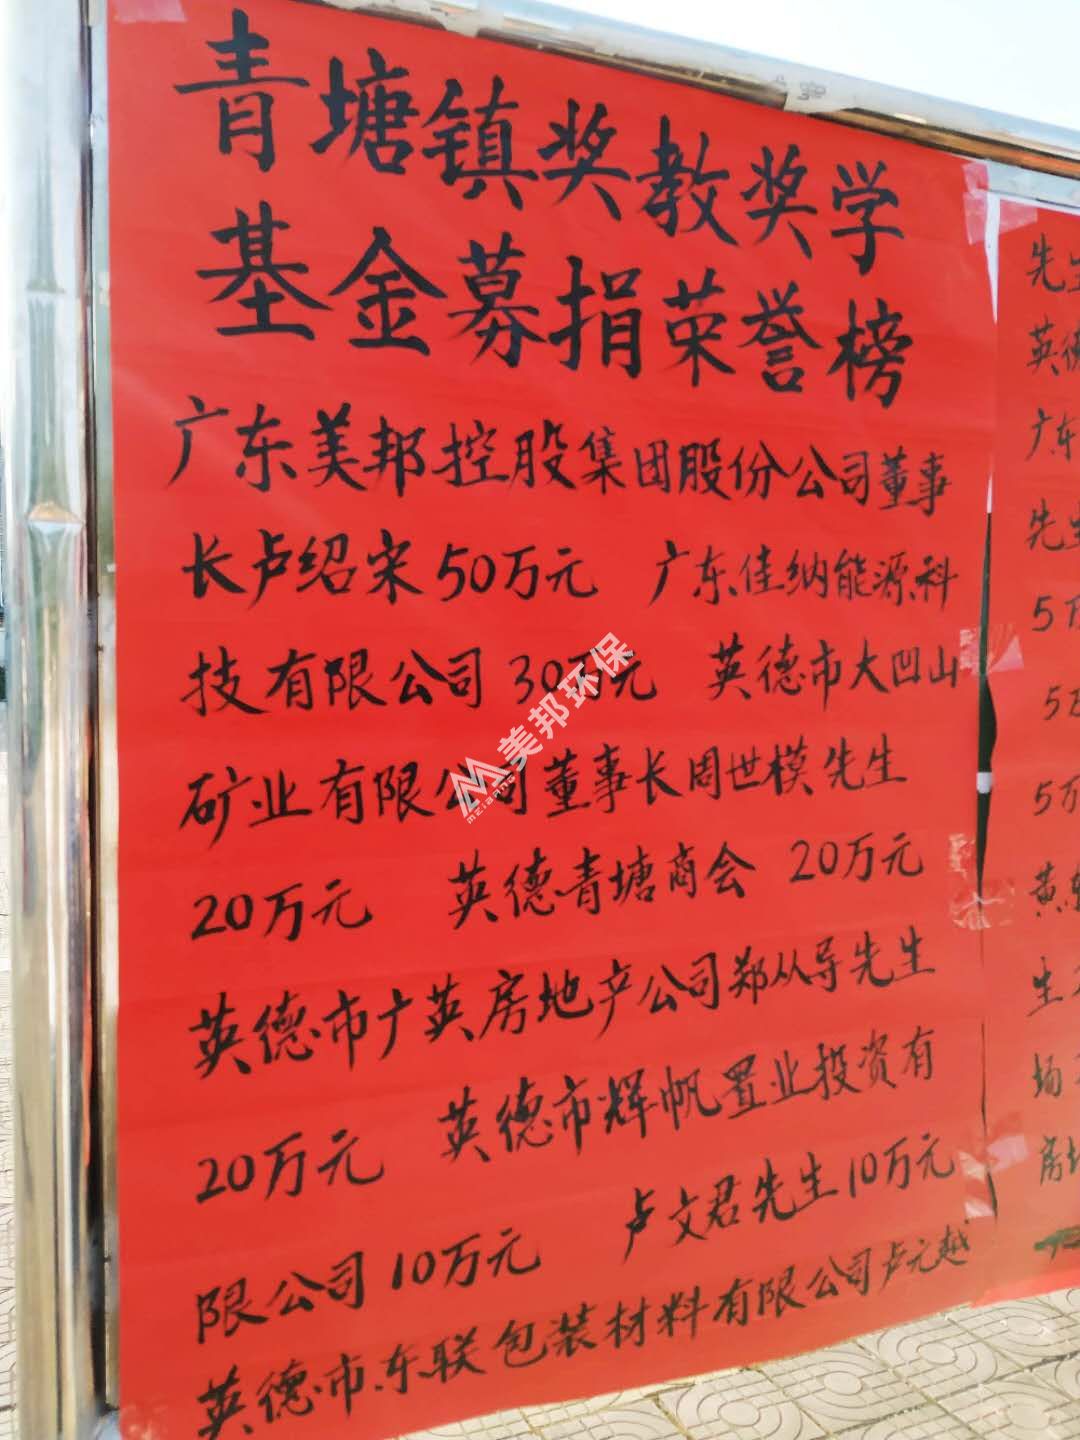 青塘镇奖教奖学
基金募捐荣誉榜
广东美邦控股集团股份公司董事
长卢绍宋50万元 广东佳纳能源科
技有限公司30万元 英德市大凹山
矿业有限公司董事长周世模先生
20万元 英德青塘商会 20万元
英德市广英房地产公司郑从导先生
20万元 英德市辉帆置业投资有
限公司10万元 卢文君先生10万元
英德市东联包装材料有限公司卢元越
美邦环保
MEIBANG
先生
英德
广东
先生
5万
5万
5万
黄东
生
场
房地